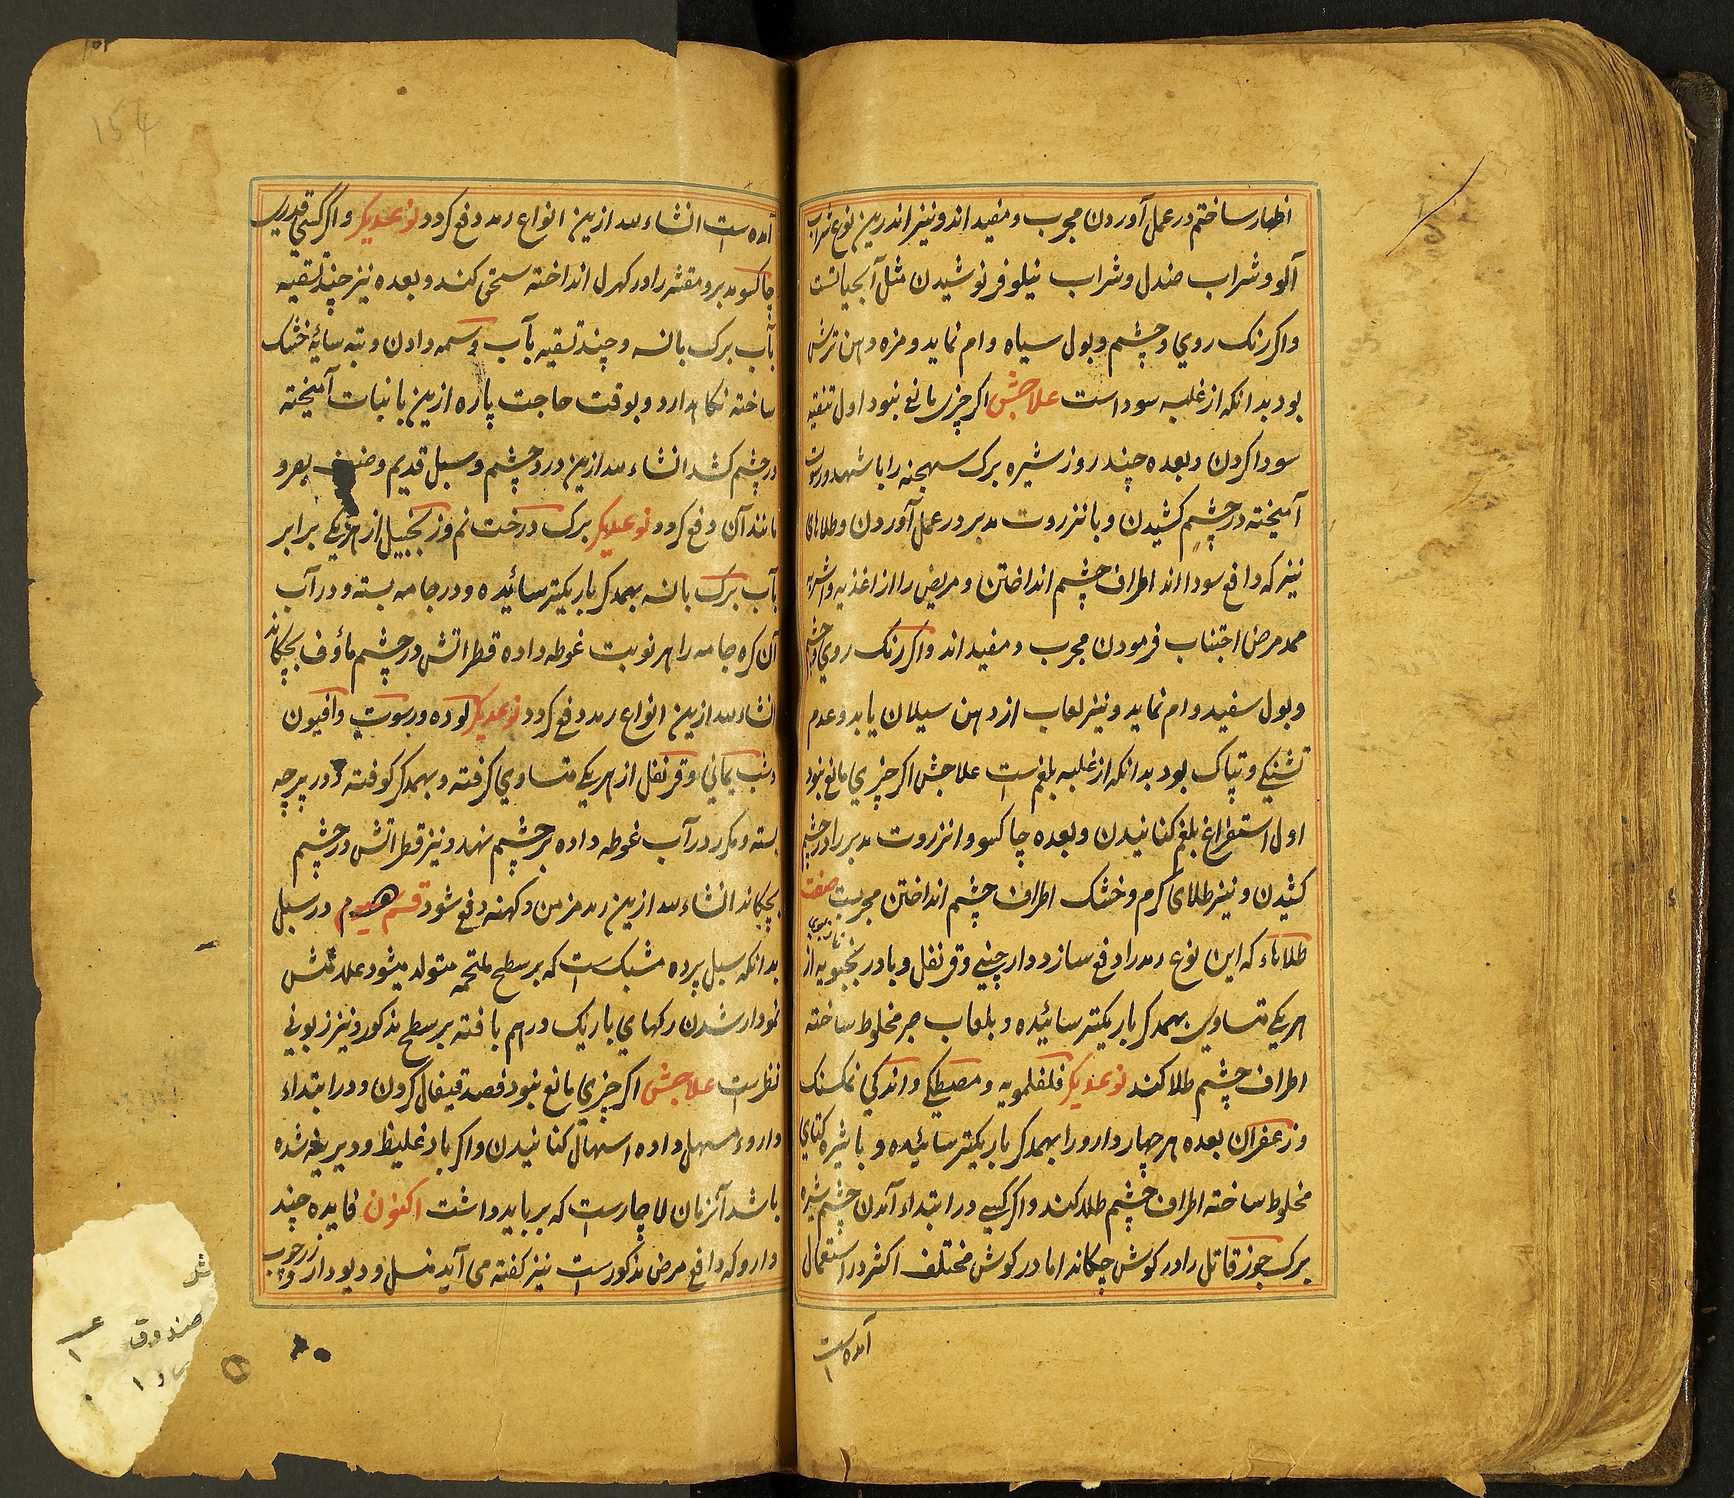 اظهار ساختم در عمل آوردن مجرب و مفید اند و نیز اندرین نوع شراب
آلو و شراب صندل و شراب نیلوفر نوشیدن مثل آبحیاتست
و اکر رنک روي و چشم و بول سیاه وام نماید و مزه دهن ترش
بود بدانکه از غلبه سوداست علاجش اکر چیزی مانع نبود اول تنقیه
سودا کردن و بعده چند روز شیره برک سهجنه را با شهد و رسوت
آمیخته در چشم کشیدن و با نزروت مدبر در عمل آوردن و طلاهای
نیز که دافع سودا اند اطراف چشم انداختن و مریض را از اغذیه و اشربه
ممد مرض اجتناب فرمودن مجرب و مفید اند و اکر رنک روي و چشم
و بول سفید وام نماید و نیز لعاب از دهن سیلان یابد و عدم
تشنکي و تپاک بود بدانکه از غلبه بلغم است علاجش اکر چیزي مانع نبود
اول استفراغ بلغم کنانیدن و بعده چاکسو و انزروت مدبر را در چشم
کشیدن و نیز طلای کرم و خشک اطراف چشم انداختن مجربست صفت
طلاهاء که این نوع رمد را دفع سازد دارچیني و قرنفل و بادرنجبویه از
هر یکي متساوي بهمدکر باریکتر سائیده و بلعاب صبر مخلوط ساخته
اطراف چشم طلا کند نوعدیکر فلفلمویه و مصطکي و اندکي نمک سنک
و زعفران بعده هر چهار دارو را بهمدکر باریکتر سائیده و با شیره کتاي
مخلوط ساخته اطراف چشم طلا کند و اکر کسي در ابتداء آمدن چشم شیره
برک جوز قاتل را در کوش چکاند اما در کوش مختلف اکثر در استعمال
آمده است
آمده است انشاء الله ازین انواع رمد دفع کردد نوعدیکر و اکر کسي قدري
چاکسو مدبر و مقشر را در کهرل انداخته سحق کند و بعده نیز چند تسقیه
بآب برک بانسه و چند تسقیه بآب وسمه دادن و بته سایه خشک
ساخته نکاهدارد و بوقت حاجت پاره ازین با نبات آمیخته
در چشم کشد انشاء الله ازین درد چشم و سبل قدیم و ضعف بصر و
مانند آن دفع کردد نوعدیکر برک درخت نم و زنجبیل از هر یکے برابر
بآب برک بانسه بهمدکر باریکتر سائیده و در جامه بسته و در آب
آن کره جامه را هر نوبت غوطه داده قطراتش در چشم ماؤف بچکاند
انشاء الله ازین انواع رمد دفع کردد نوعدیکر لوده و رسوت و افیون
و شب یماني و قرنفل از هر یکے متساوي کرفته و بهمدکر کوفته و در پرچه
بسته و مکرر در آب غوطه داده بر چشم نهد و نیز قطراتش در چشم
بچکاند انشاء الله ازین رمد مزمن و کهنه دفع شود قسم سیوم در سبل
بدانکه سبل پرده مشبک است که بر سطح ملتحمه متولد میشود علامتش
نمودار شدن رکهاي باریک درهم بافته بر سطح مذکور و نیز زبوني
نظر است علاجش اکر چیزي مانع نبود فصد قیفال کردن و در ابتداء
داروء اسهل داده اسهال کنانیدن و اکر باد غلیظ و دیرینه شده
باشد آنزمان لاچارست که برباید داشت اکنون فایده چند
دارو که دافع مرض مذکورست نیز کفته می آید منسل و دیودار و زرد چوب
154
صندوق